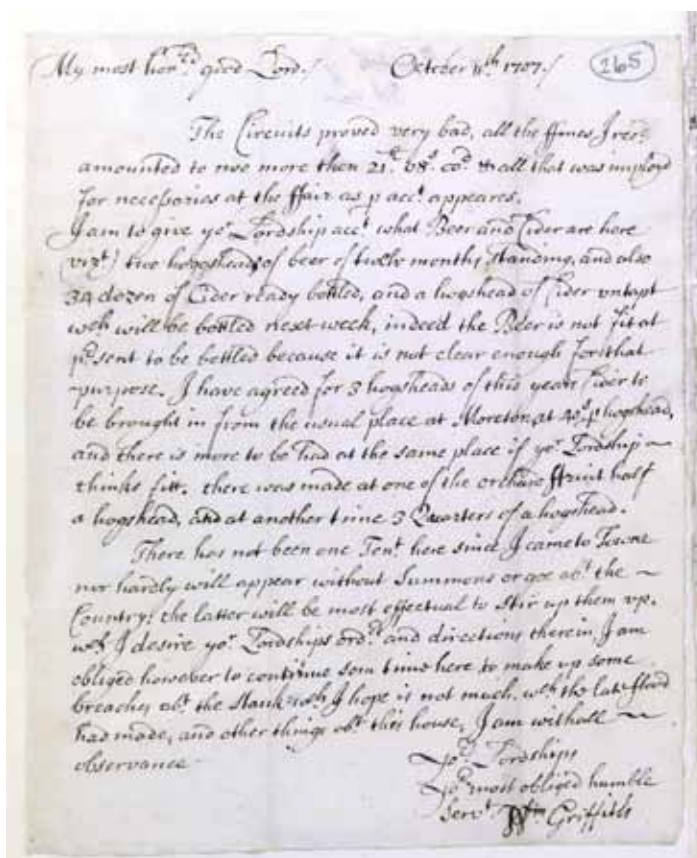 My most hon:rd good Lord./ October 11th. 1707./ 265
The Circuits proved very bad, all the ffines I rec:
amounted to noe more then 21l. 08s. 00d. & all that was imployd
for necessaries at the ffair as p acct. appeares.
I am to give yor. Lordship acct. what Beer and Cider are here
(vizt.) two hogsheads of beer of twelve months standing, and also
34 dozen of Cider ready bottled, and a hogshead of Cider vntapt
wch will be bottled next week, indeed the Beer is not fit at
present to be bottled because it is not clear enough for that
purpose. I have agreed for 3 hogsheads of this years Cider to
be brought in from the usual place at Moreton, at 40s. p hogshead,
and there is more to be had at the same place if yor. Lordship ~
thinks fitt. there was made at one of the orchard ffruit half
a hogshead, and at another time 3 Quarters of a hogshead.
There has not been one Tent. here since I came to Towne
nor hardly will appear without Summons or goe abt. the ~
Country: the latter will be most effectual to stir up them vp.
wch I desire yor. Lordships ordr. and directions therein, I am
obliged however to continue som time here to make up some
breaches abt. the Stank wch I hope is not much. wch the late fflood
had made, and other things abt. this house, I am with all ~
observance
yor. Lordships
yor. most obliged humble
Servt. Wm Griffith